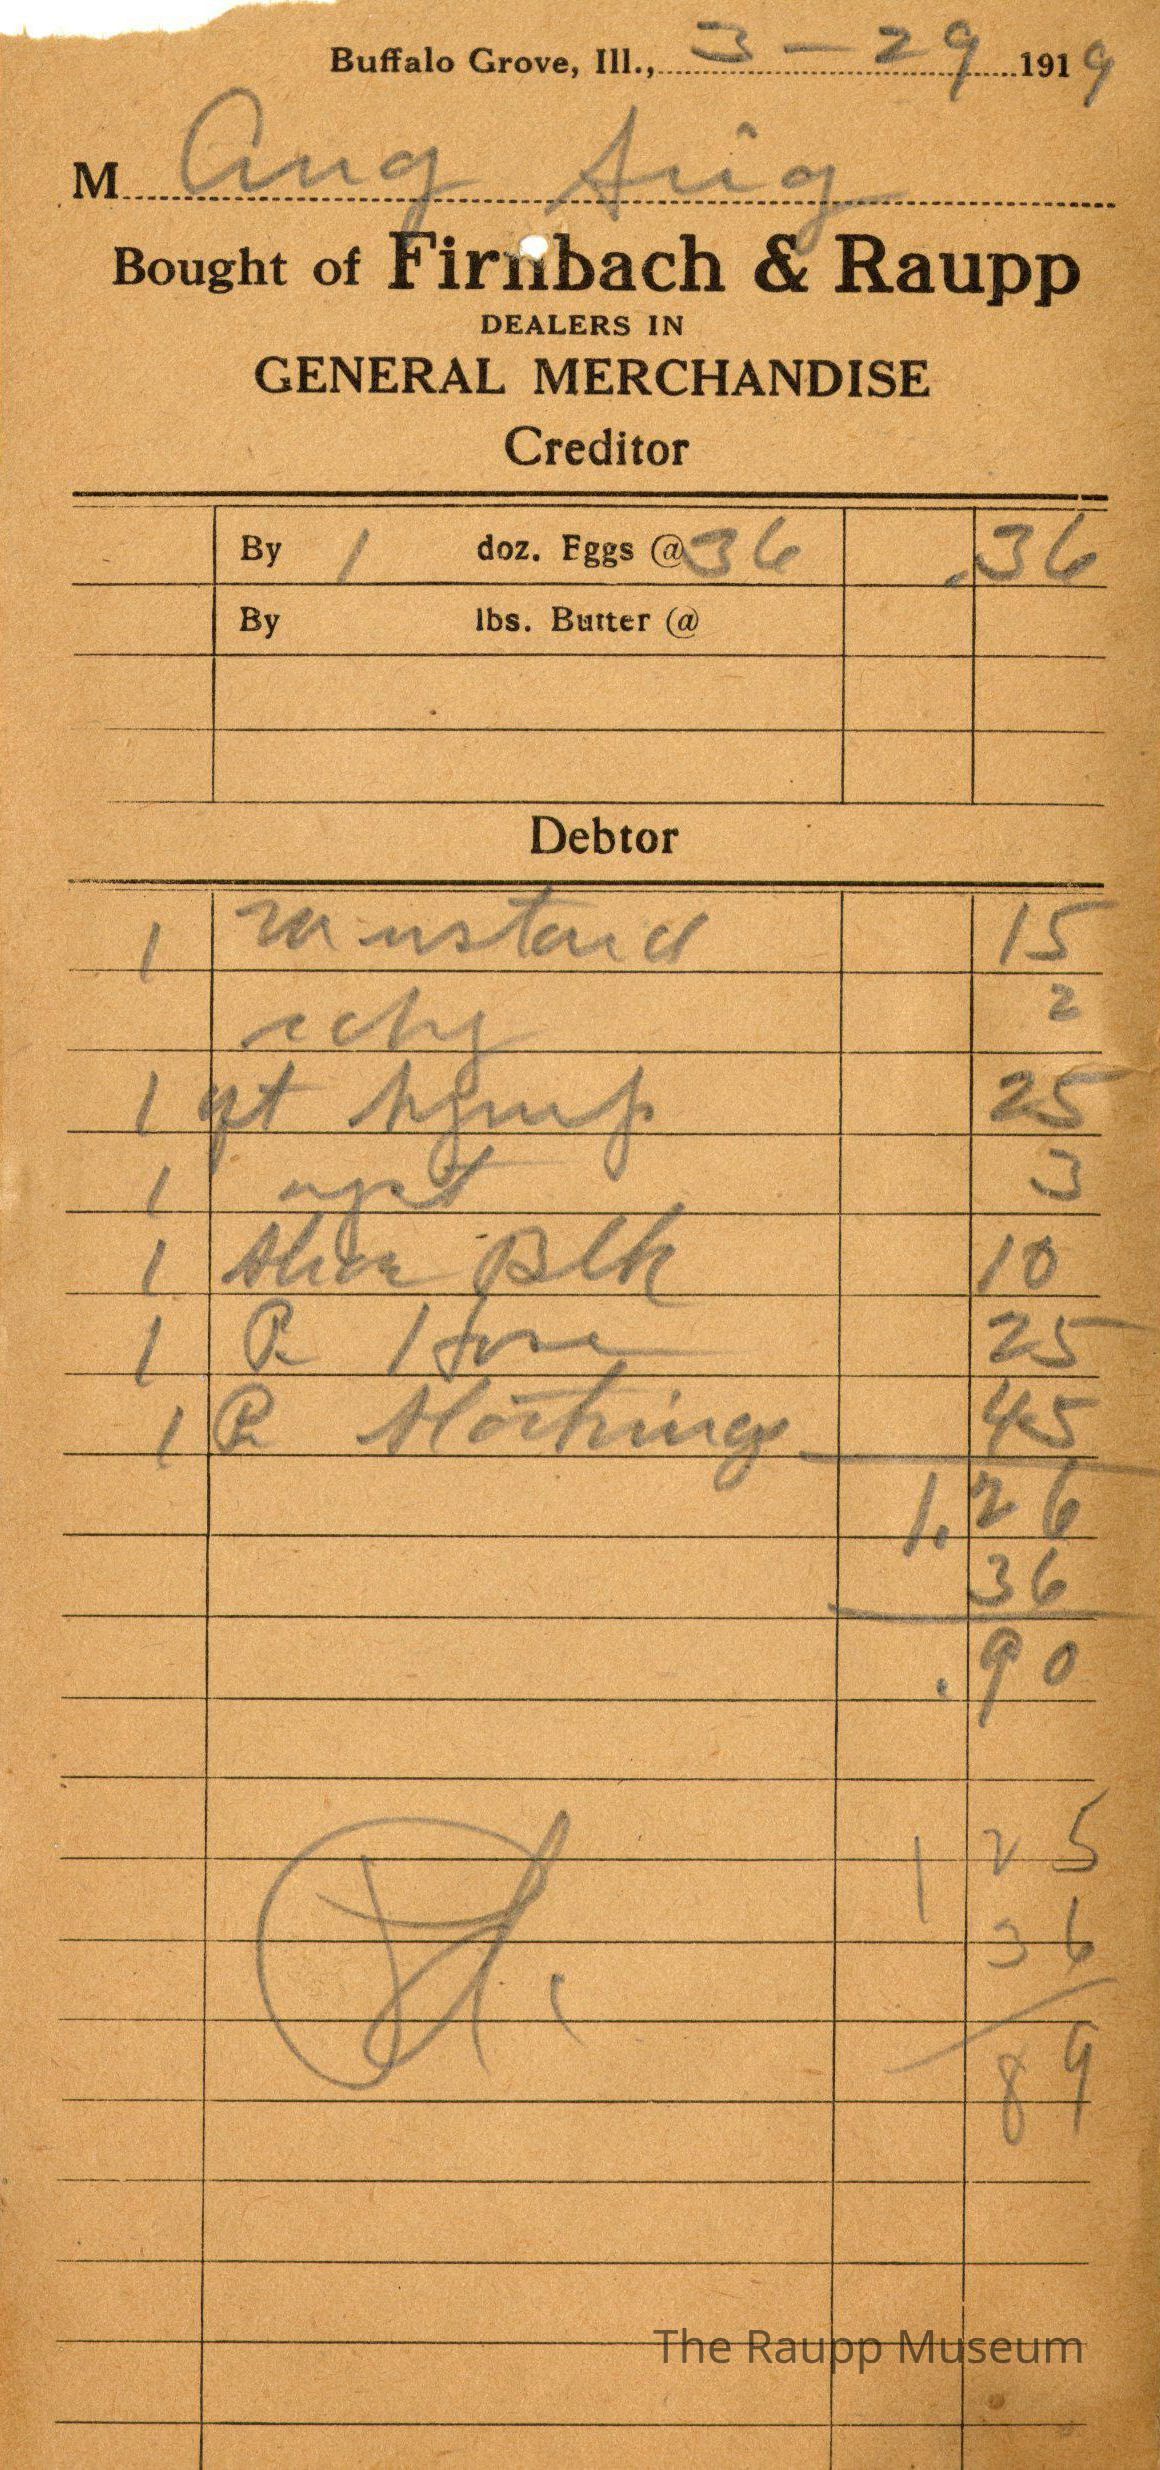 Buffalo Grove, Ill., 3 - 29 1919
M Aug Sig
Bought of Firnbach & Raupp
DEALERS IN
GENERAL MERCHANDISE
Creditor
By 1 doz. Eggs @ 36 .36
By lbs. Butter @
Debtor
1 Mustard 15
2
1 qt 25
1 3
1 Shoe Blk 10
1 P. Hose 25
1 P. Stockings 45
1.26
36
.90
1 25
36
89
The Raupp Museum